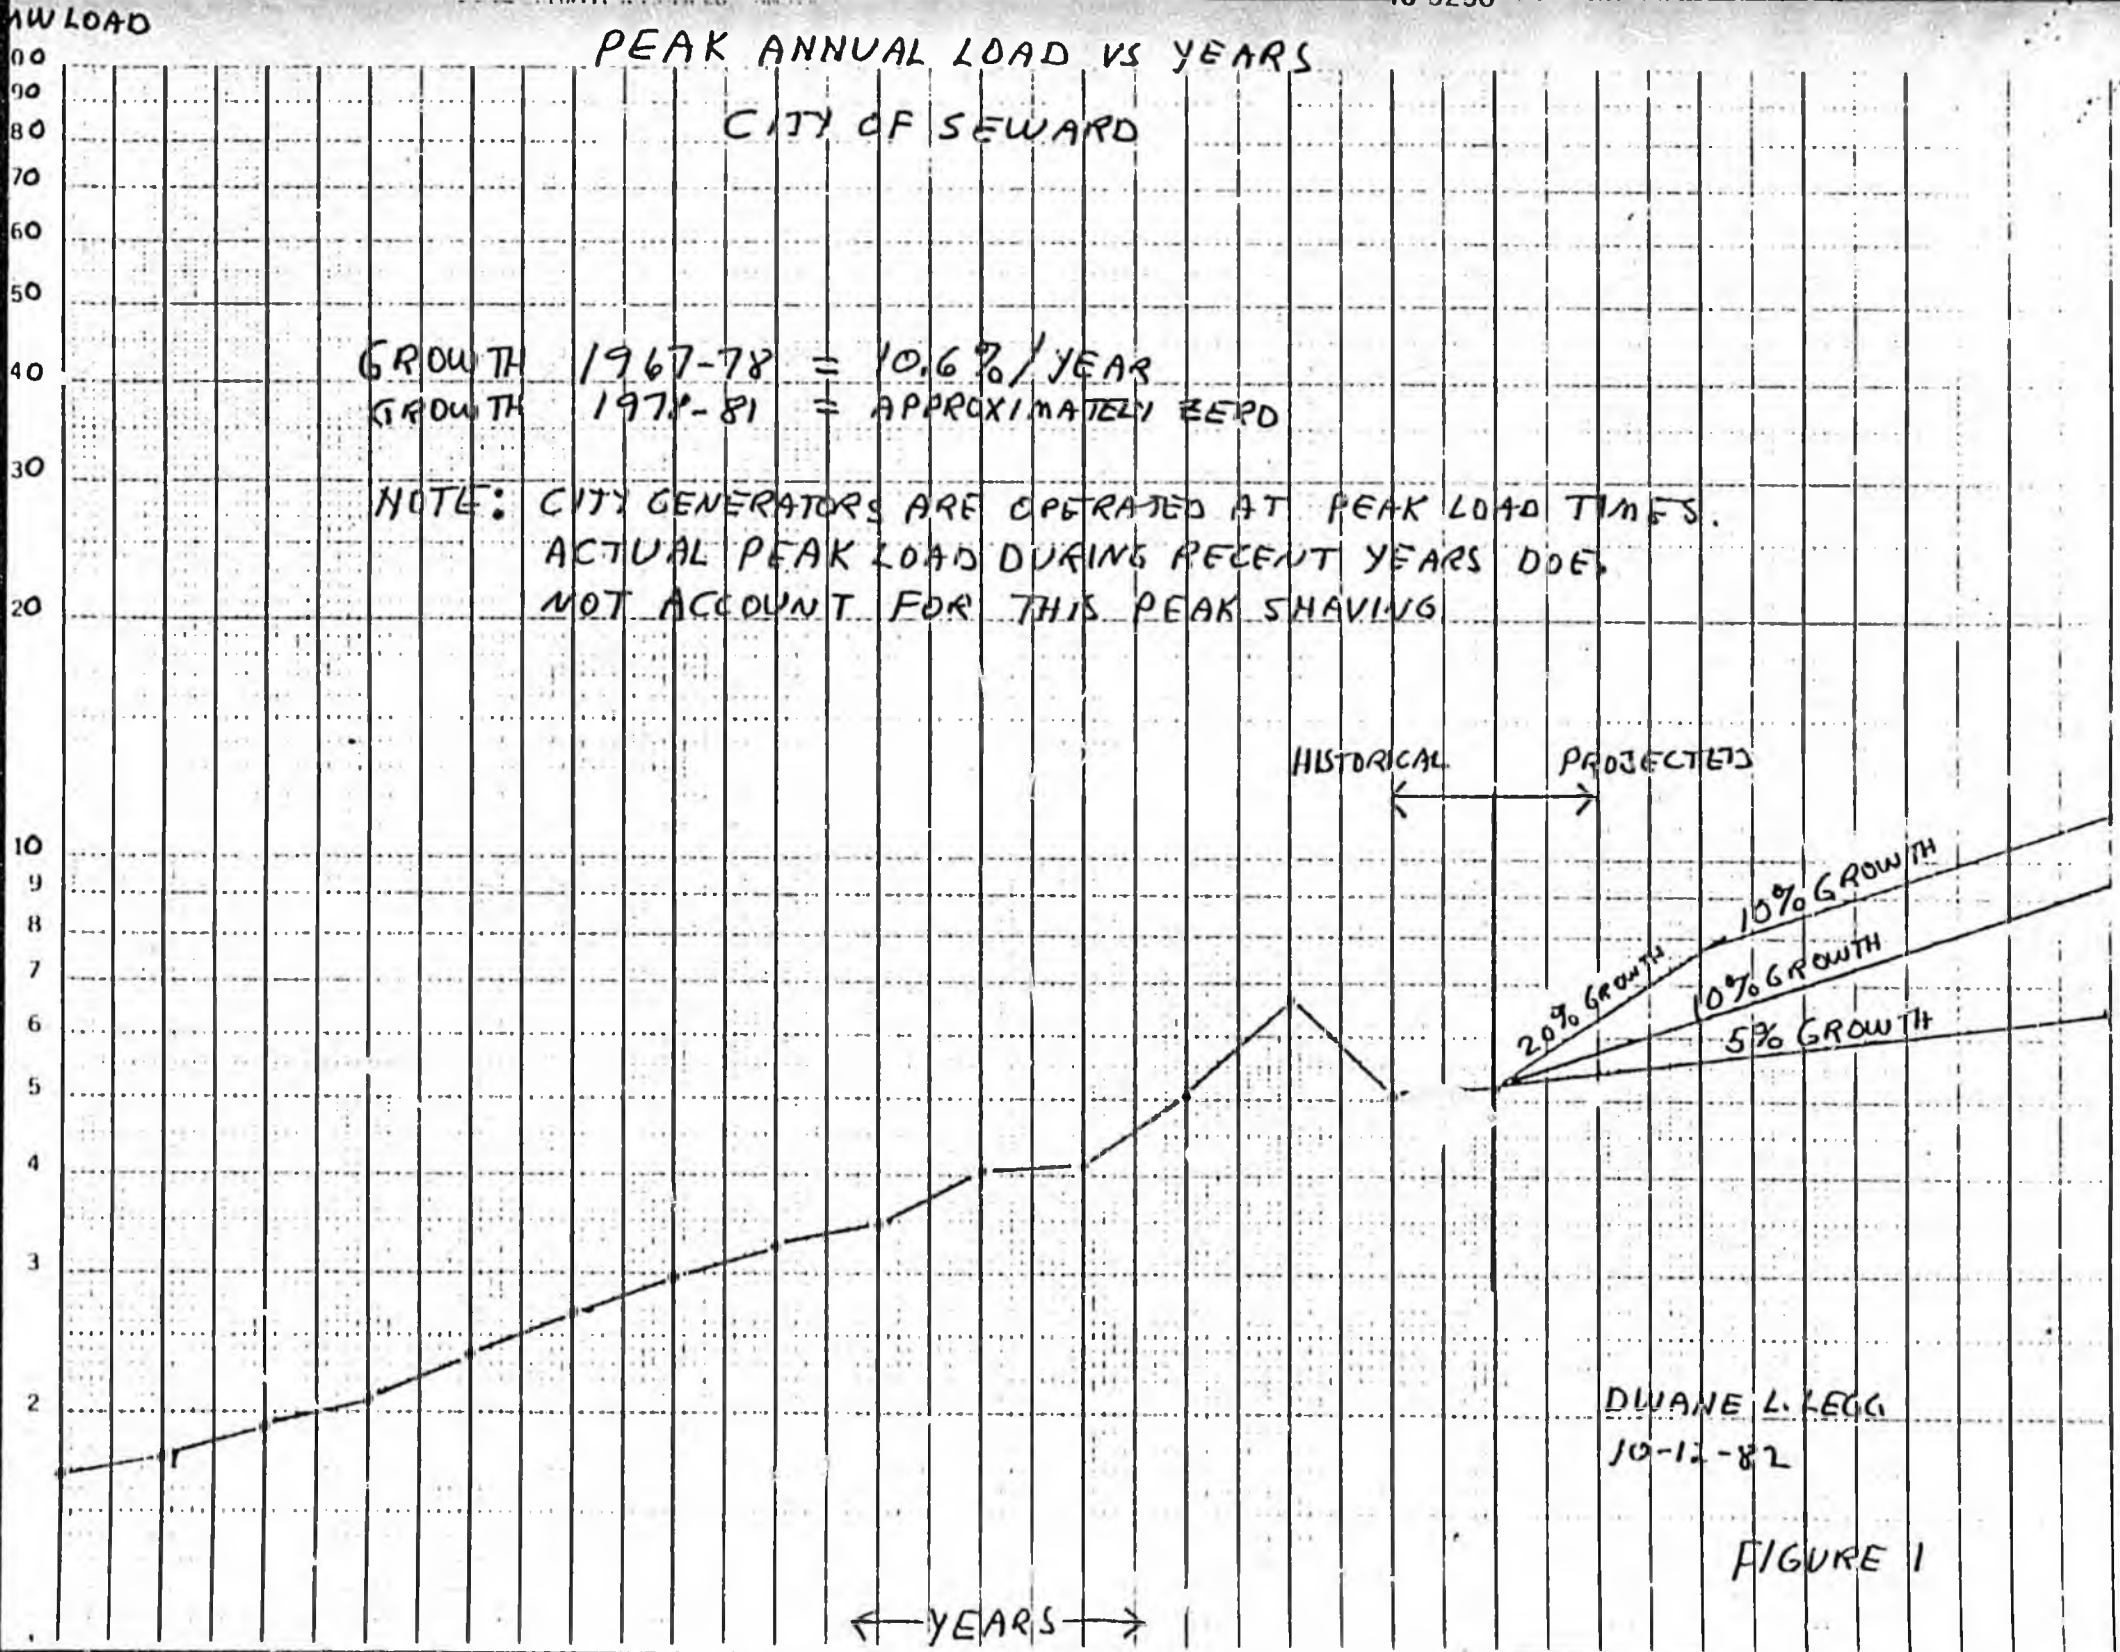 MW LOAD
PEAK ANNUAL LOAD VS YEARS
CITY OF SEWARD
00
90
80
70
60
50
40
30
20
10
9
8
7
6
5
4
3
2
GROWTH 1967-78 = 10.6%/YEAR
GROWTH 1978-81 = APPROXIMATELY ZERO
NOTE: CITY GENERATORS ARE OPERATED AT PEAK LOAD TIMES.
ACTUAL PEAK LOAD DURING RECENT YEARS DOE
NOT ACCOUNT FOR THIS PEAK SHAVING
HISTORICAL PROJECTED
20% GROWTH
10% GROWTH
10% GROWTH
5% GROWTH
DUANE L. LEGG
10-12-82
FIGURE 1
YEARS